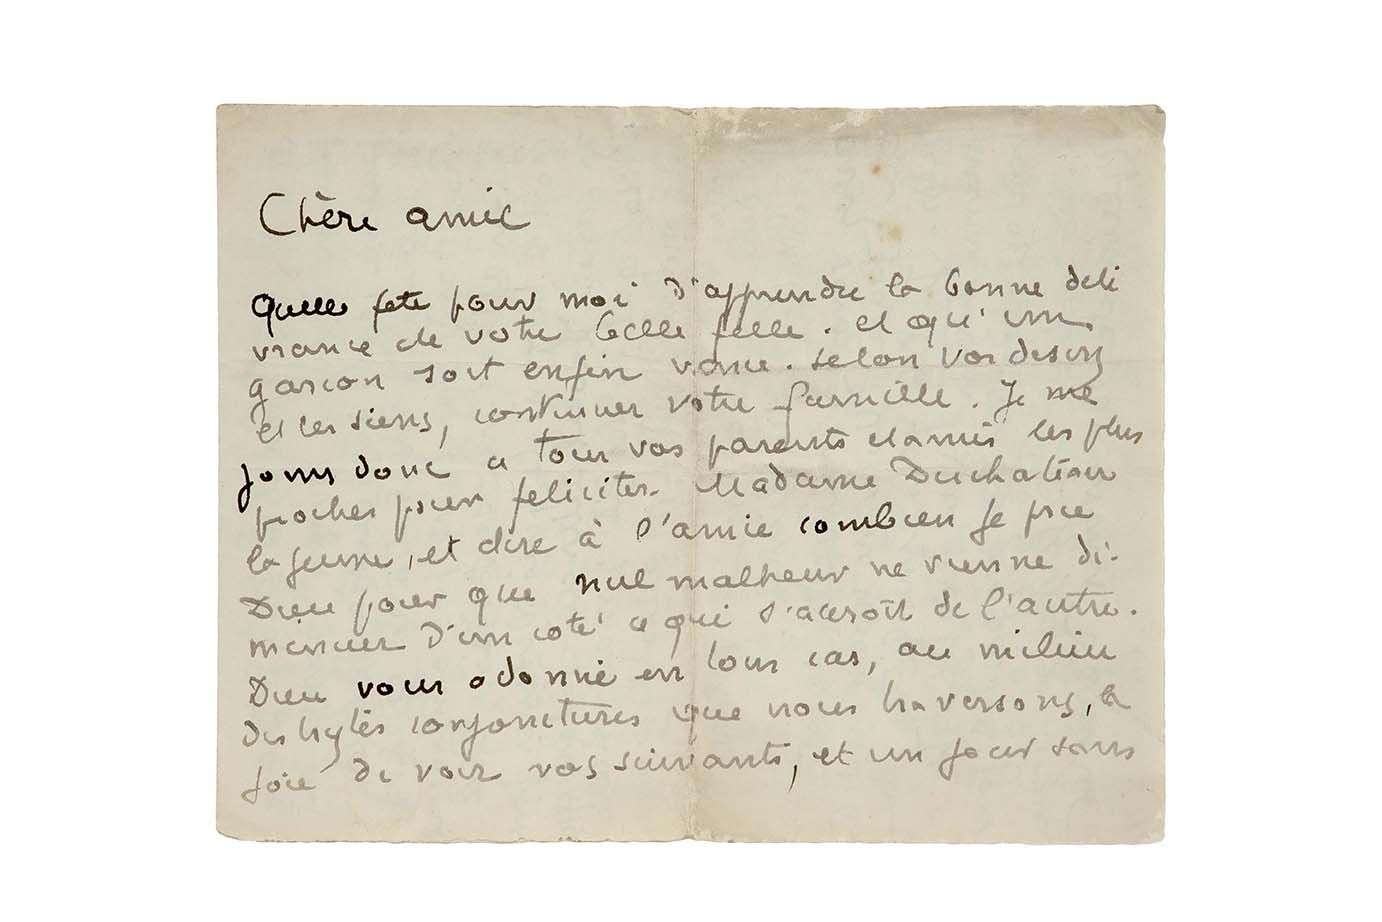 Chère amie
Quelle fete pour moi d'apprendre la bonne deli
vrance de votre belle fille. et qu'un
garcon soit enfin venu. selon vos desirs
et les siens, continuer votre famille. Je me
joins donc a tous vos parents et amis les plus
proches pour feliciter. Madame Duchateau
la jeune, et dire à l'amie combien je prie
Dieu pour que nul malheur ne vienne di-
minuer d'un coté ce qui s'acroît de l'autre.
Dieu vous a donné en tous cas, au milieu
des conjonctures que nous traversons, la
joie de voir vos suivants, et un jour sans